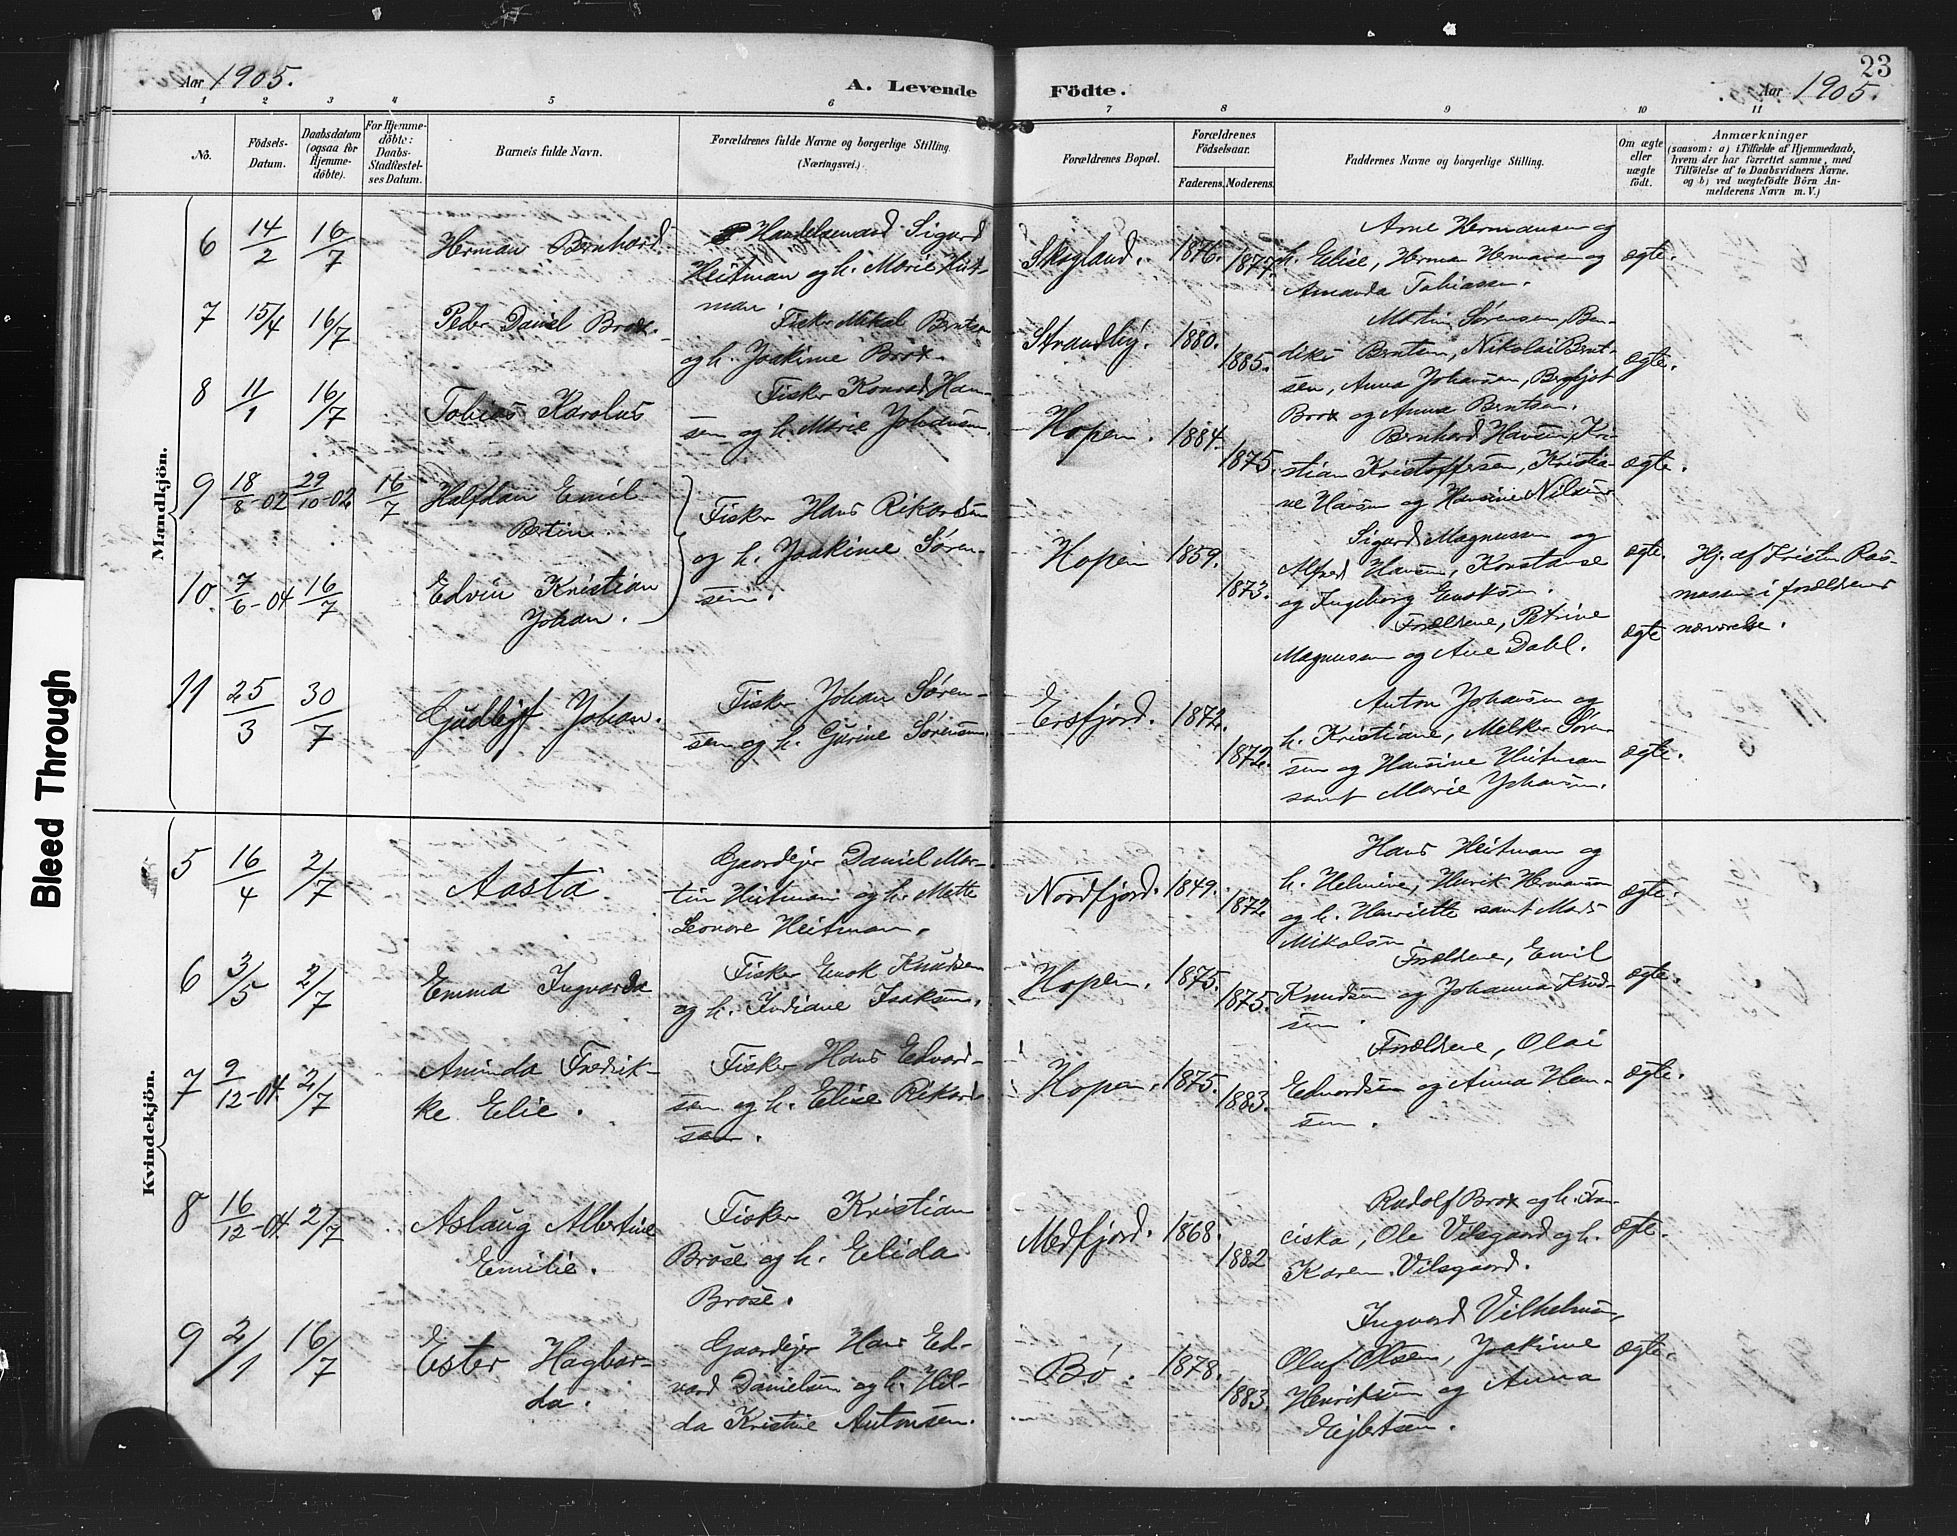 Aar 1905.
A. Levende Födte.
Aar 1905.
23
1 2 3 4 5 6 7 8 9 10 11
No.
Födsels-Datum.
Daabsdatum (ogsaa for Hjemmedöbte).
For Hjemmedöbte: Daabs-Stadfæstelses Datum.
Barnets fulde Navn.
Forældrenes fulde Navne og borgerlige Stilling (Næringsvei.)
Forældrenes Bopæl.
Forældrenes Födselsaar.
Faderens. Moderens.
Faddernes Navne og borgerlige Stilling.
Om ægte eller uægte födt.
Anmærkninger
(saasom: a) i Tilfælde af Hjemmedaab, hvem der har forrettet samme, med Tilföielse af to Daabsvidners Navne. og b) ved uægtefödte Börn Anmelderens Navn m. V.)
Mandkjön.
6 14/2 16/7 Herman Bernhard
Handelsmand Sigurd
Heitman og h. Marie Heit-
man.
Skogland. 1876. 1877.
Arne Hermansen og
h. Elise, Herman Hermansen og
Amanda Tobiassen.
ægte.
7 15/4 16/7 Peder Daniel Brox.
Fisker Mikal Berntsen
og h. Joakime Brox.
Strandby. 1880. 1885.
Martin Sørensen, Ben-
dike Berntsen, Nikolai Bernt-
sen, Anna Johansen, Bergljot
Brox og Anna Berntsen.
ægte.
8 11/1 16/7 Tobias Karolus
Fisker Konrad Han-
sen og h. Marie Johansen.
Hopen. 1884. 1875.
Bernhard Hansen, Kri-
stian Kristoffersen, Kristia-
ne Hansen og Hansine Nilsen
ægte.
9 18/8-02 29/10-02 16/7 Halfdan Emil
Bertin.
Fisker Hans Rikardsen
og h. Joakime Søren-
sen.
Hopen 1859. 1873.
Sigurd Magnussen og
Alfred Hansen, Konstanse
og Ingeborg Enoksen.
ægte.
Hj. af Kristen Ras-
mussen i forældrenes
nærværelse.
10. 7/6-04 16/7 Edvin Kristian
Johan.
Forældrene, Petrine
Magnussen og Ane Dahl.
ægte
11 25/3 30/7 Gudleif Johan.
Fisker Johan Søren-
sen og h. Gurine Sørensen.
Ersfjord. 1872. 1872.
Anton Johansen og
h. Kristiane, Melker Søren-
sen og Hansine Heitman
samt Marie Johansen.
ægte.
Kvindekjön.
5 16/4 2/7 Aasta
Gaardejer Daniel Mar-
tin Heitman og h. Mette
Leonore Heitman.
Nordfjord. 1849. 1872.
Hans Heitman og
h. Helmine, Henrik Hermansen
og h. Henriette samt Mads
Mikalsen
ægte.
6 3/5 2/7 Emma Ingvarda
Fisker Enok Knudsen
og h. Indiane Isaksen.
Hopen. 1875. 1875.
Forældrene, Emil
Knudsen og Johanna Knud-
sen.
ægte.
7 9/12-04. 2/7 Aminda Fredrik-
ke Elie.
Fisker Hans Edvard-
sen og h. Elise Rikard-
sen.
Hopen. 1875. 1883.
Forældrene, Olai
Edvardsen og Anna Han-
sen.
ægte.
8 16/12-04. 2/7 Aslaug Albertine
Emilie.
Fisker Kristian
Brose og h. Elida
Brose.
Medfjord. 1868. 1882
Rudolf Brox og h. Fran-
ciska, Ole Vilsgaard og h.
Karen Vilsgaard.
ægte.
9 2/1 16/7 Ester Hagbar-
da.
Gaardejer Hans Ed-
vard Danielsen og h. Hil-
da Kristine Antonsen.
Bø. 1878. 1883.
Ingvard Vilhelmsen,
Oluf Olsen, Joakime
Henriksen og Anna
Eijlertsen.
ægte.
Bleed Through